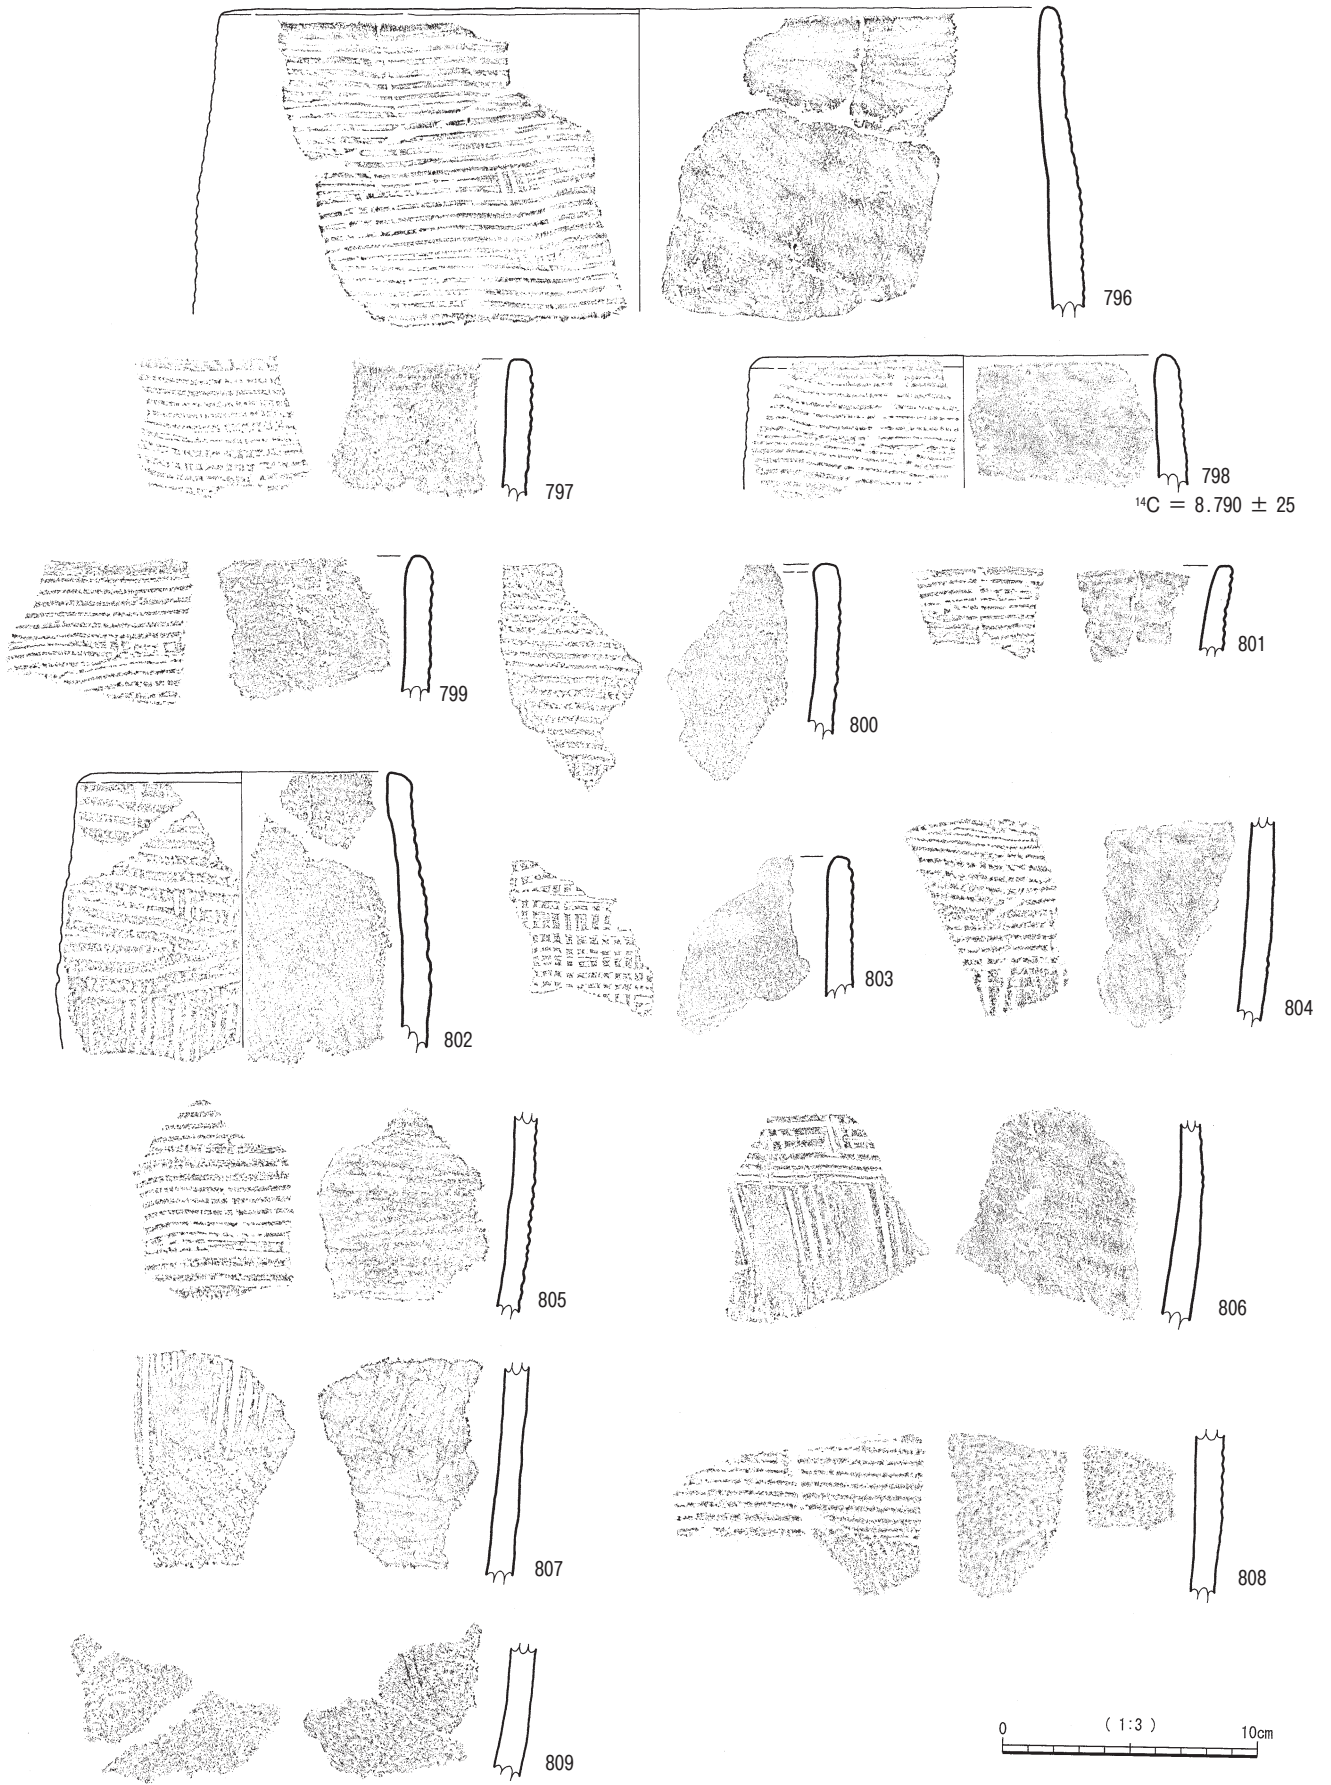 796
797
798
¹⁴C = 8.790 ± 25
799
800
801
802
803
804
805
806
807
808
809
0 (1:3) 10cm